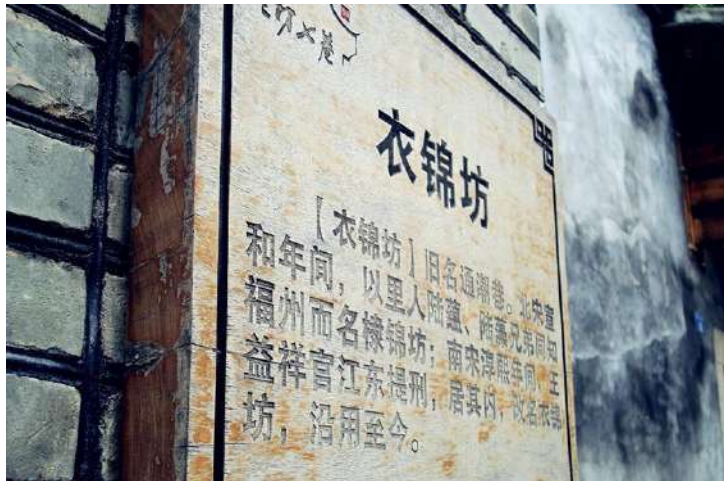 三坊七巷
衣锦坊
【衣锦坊】旧名通潮巷。北宋宣
和年间，以里人陆蕴、陆藻兄弟同知
福州而名棣锦坊；南宋淳熙年间，王
益祥官江东提刑，居其内，改名衣锦
坊，沿用至今。